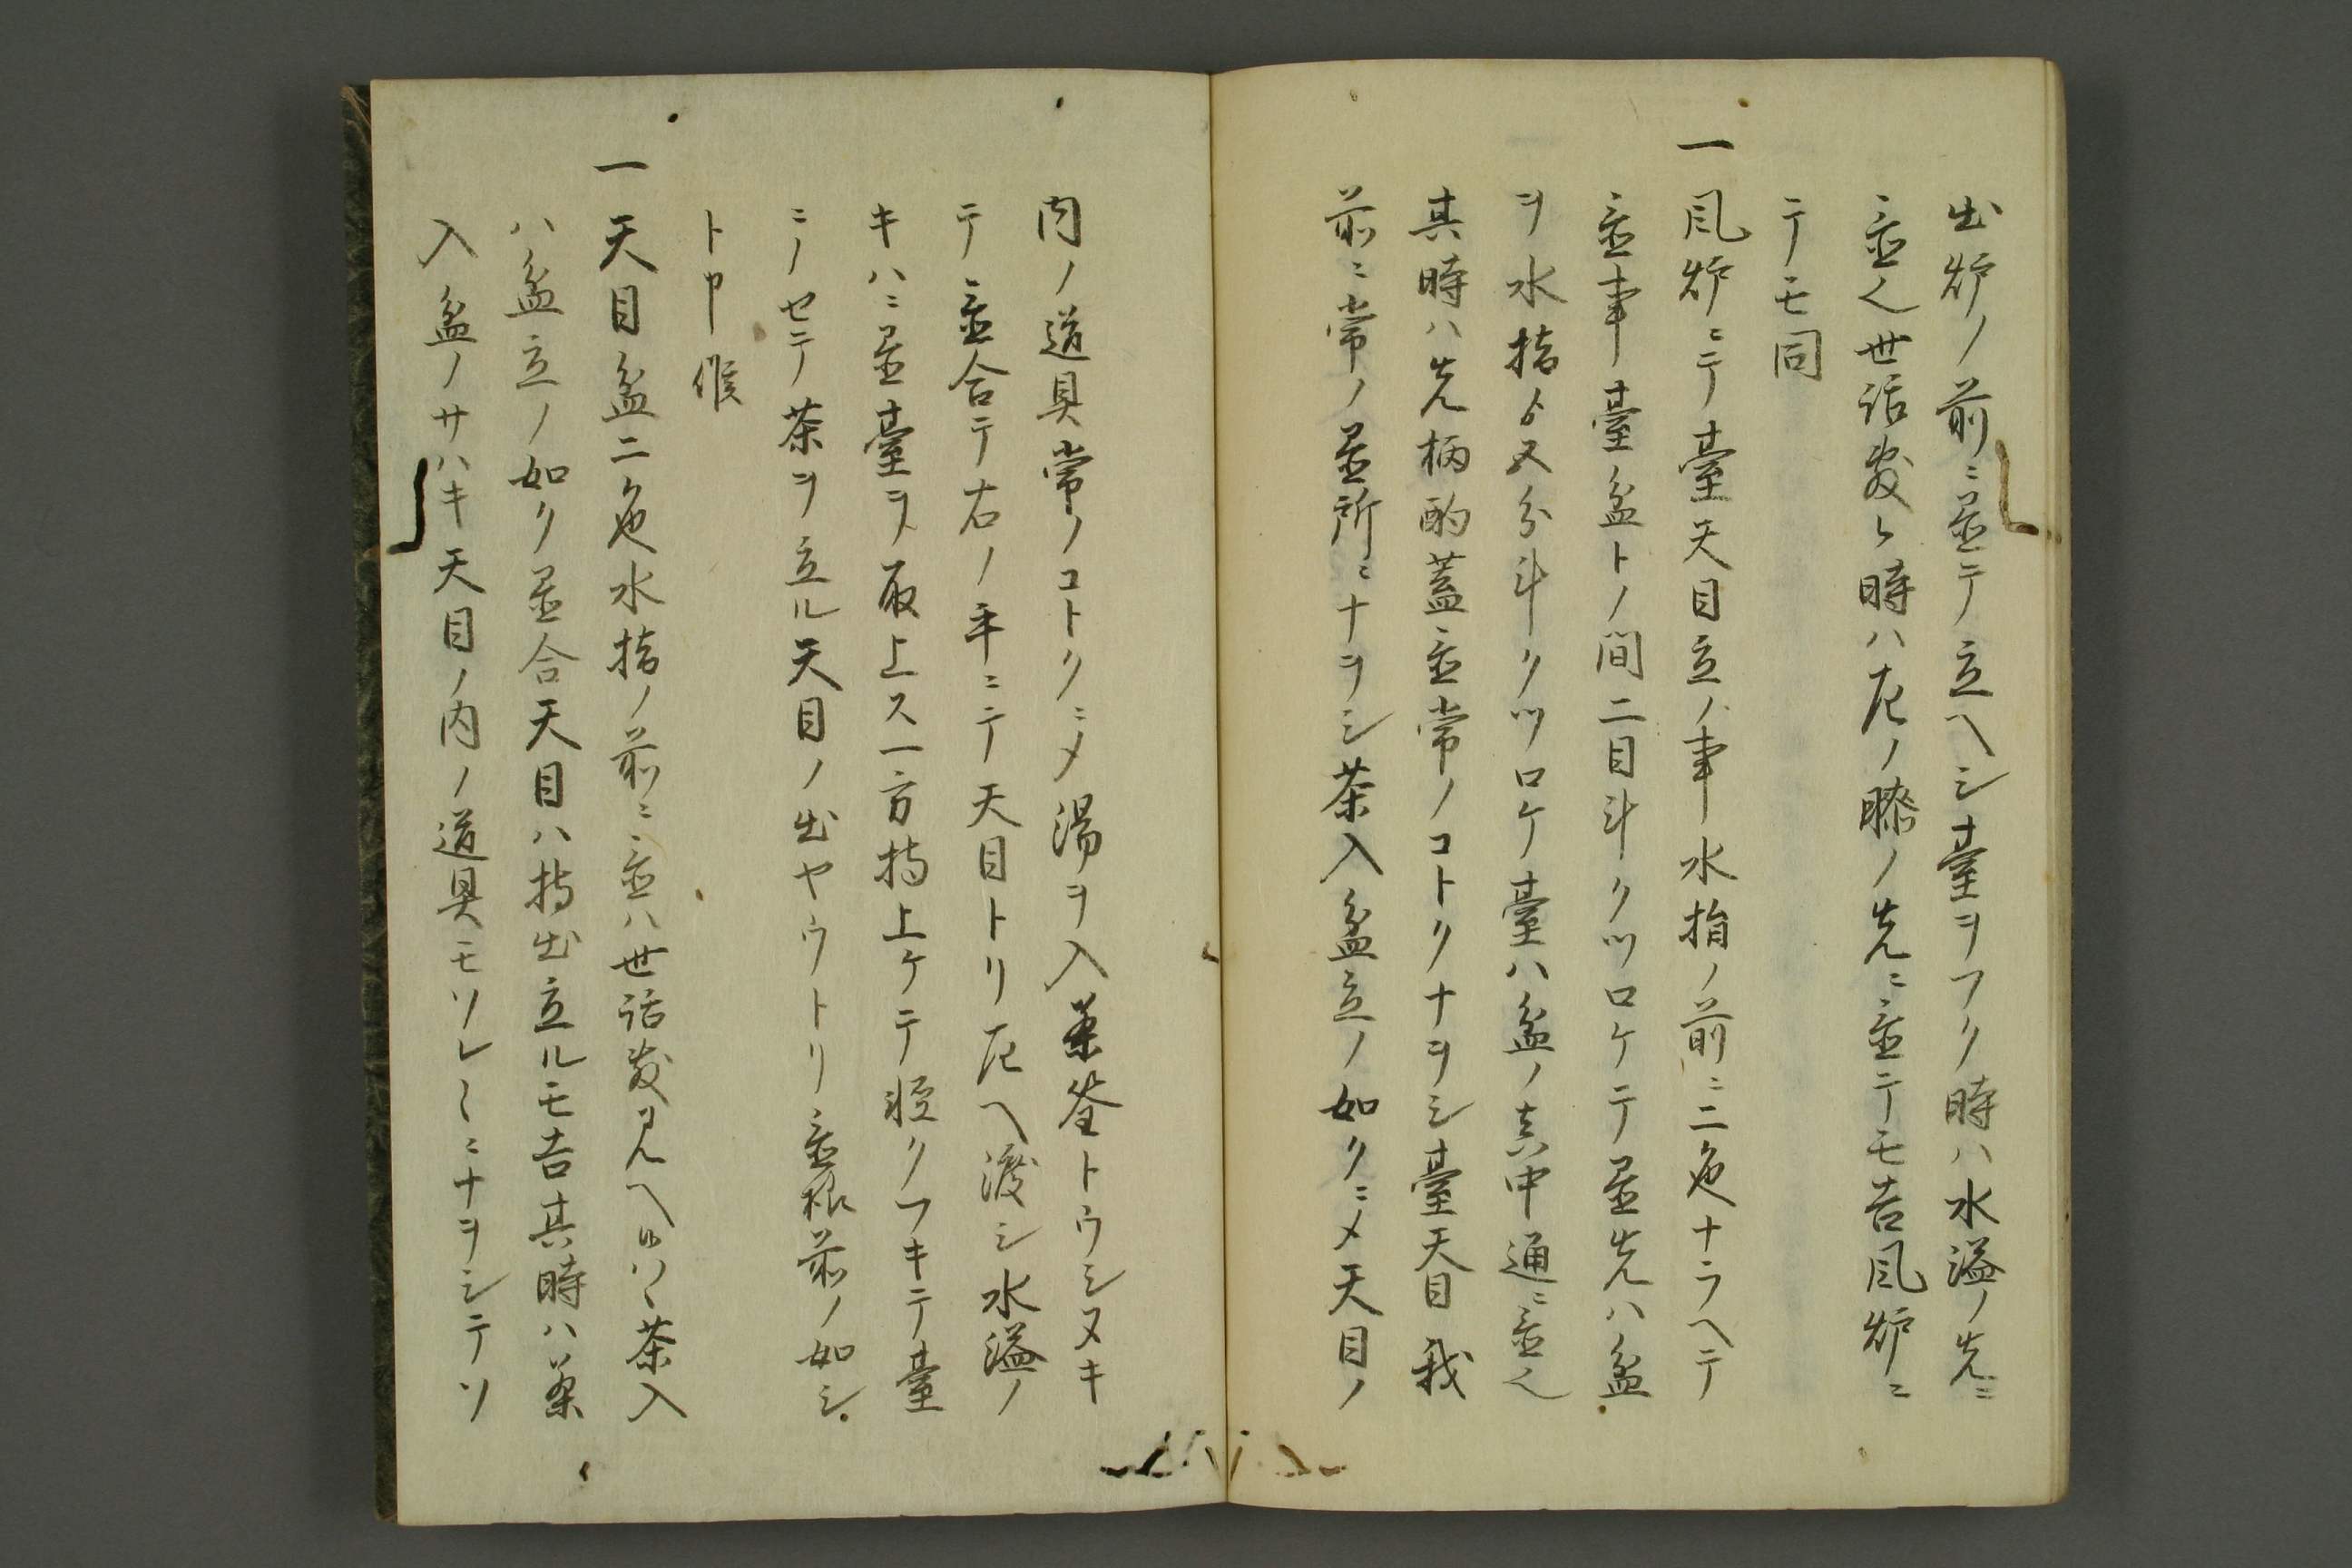 出炉ノ前ニ置テ立ヘシ臺ヲフク時ハ水溢ノ先ニ
置く世話敷ク時ハ左ノ膝ノ先ニ置テモ吉風炉ニ
テモ同
一風炉ニテ臺天目立ノ事水指ノ前ニ二色ナラヘテ
置事臺盆トノ間二目斗クツロケテ置先ハ盆
ヲ水指ゟ又分斗クツロケ臺ハ盆ノ真中通ニ置く
其時ハ先柄酌蓋置常ノコトクナヲシ臺天目我
前ニ常ノ置所ニナヲシ茶入盆立ノ如クニメ天目ノ
内ノ道具常ノコトクニメ湯ヲ入茶筌トウシヌキ
テ置合テ右ノ手ニテ天目トリ左ヘ渡シ水溢ノ
キハニ置臺ヲ取上ス一方持上ケテ軽クフキテ臺
ニノセテ茶ヲ立ル天目ノ出ヤウトリ置様前ノ如シ
ト申候
一天目盆二色水指ノ前ニ置ハ世話敷見ヘハ茶入
ハ盆立ノ如ク置合天目ハ持出立ルモ吉其時ハ茶
入盆ノサハキ天目ノ内ノ道具モソレ〱ニナヲシテソ